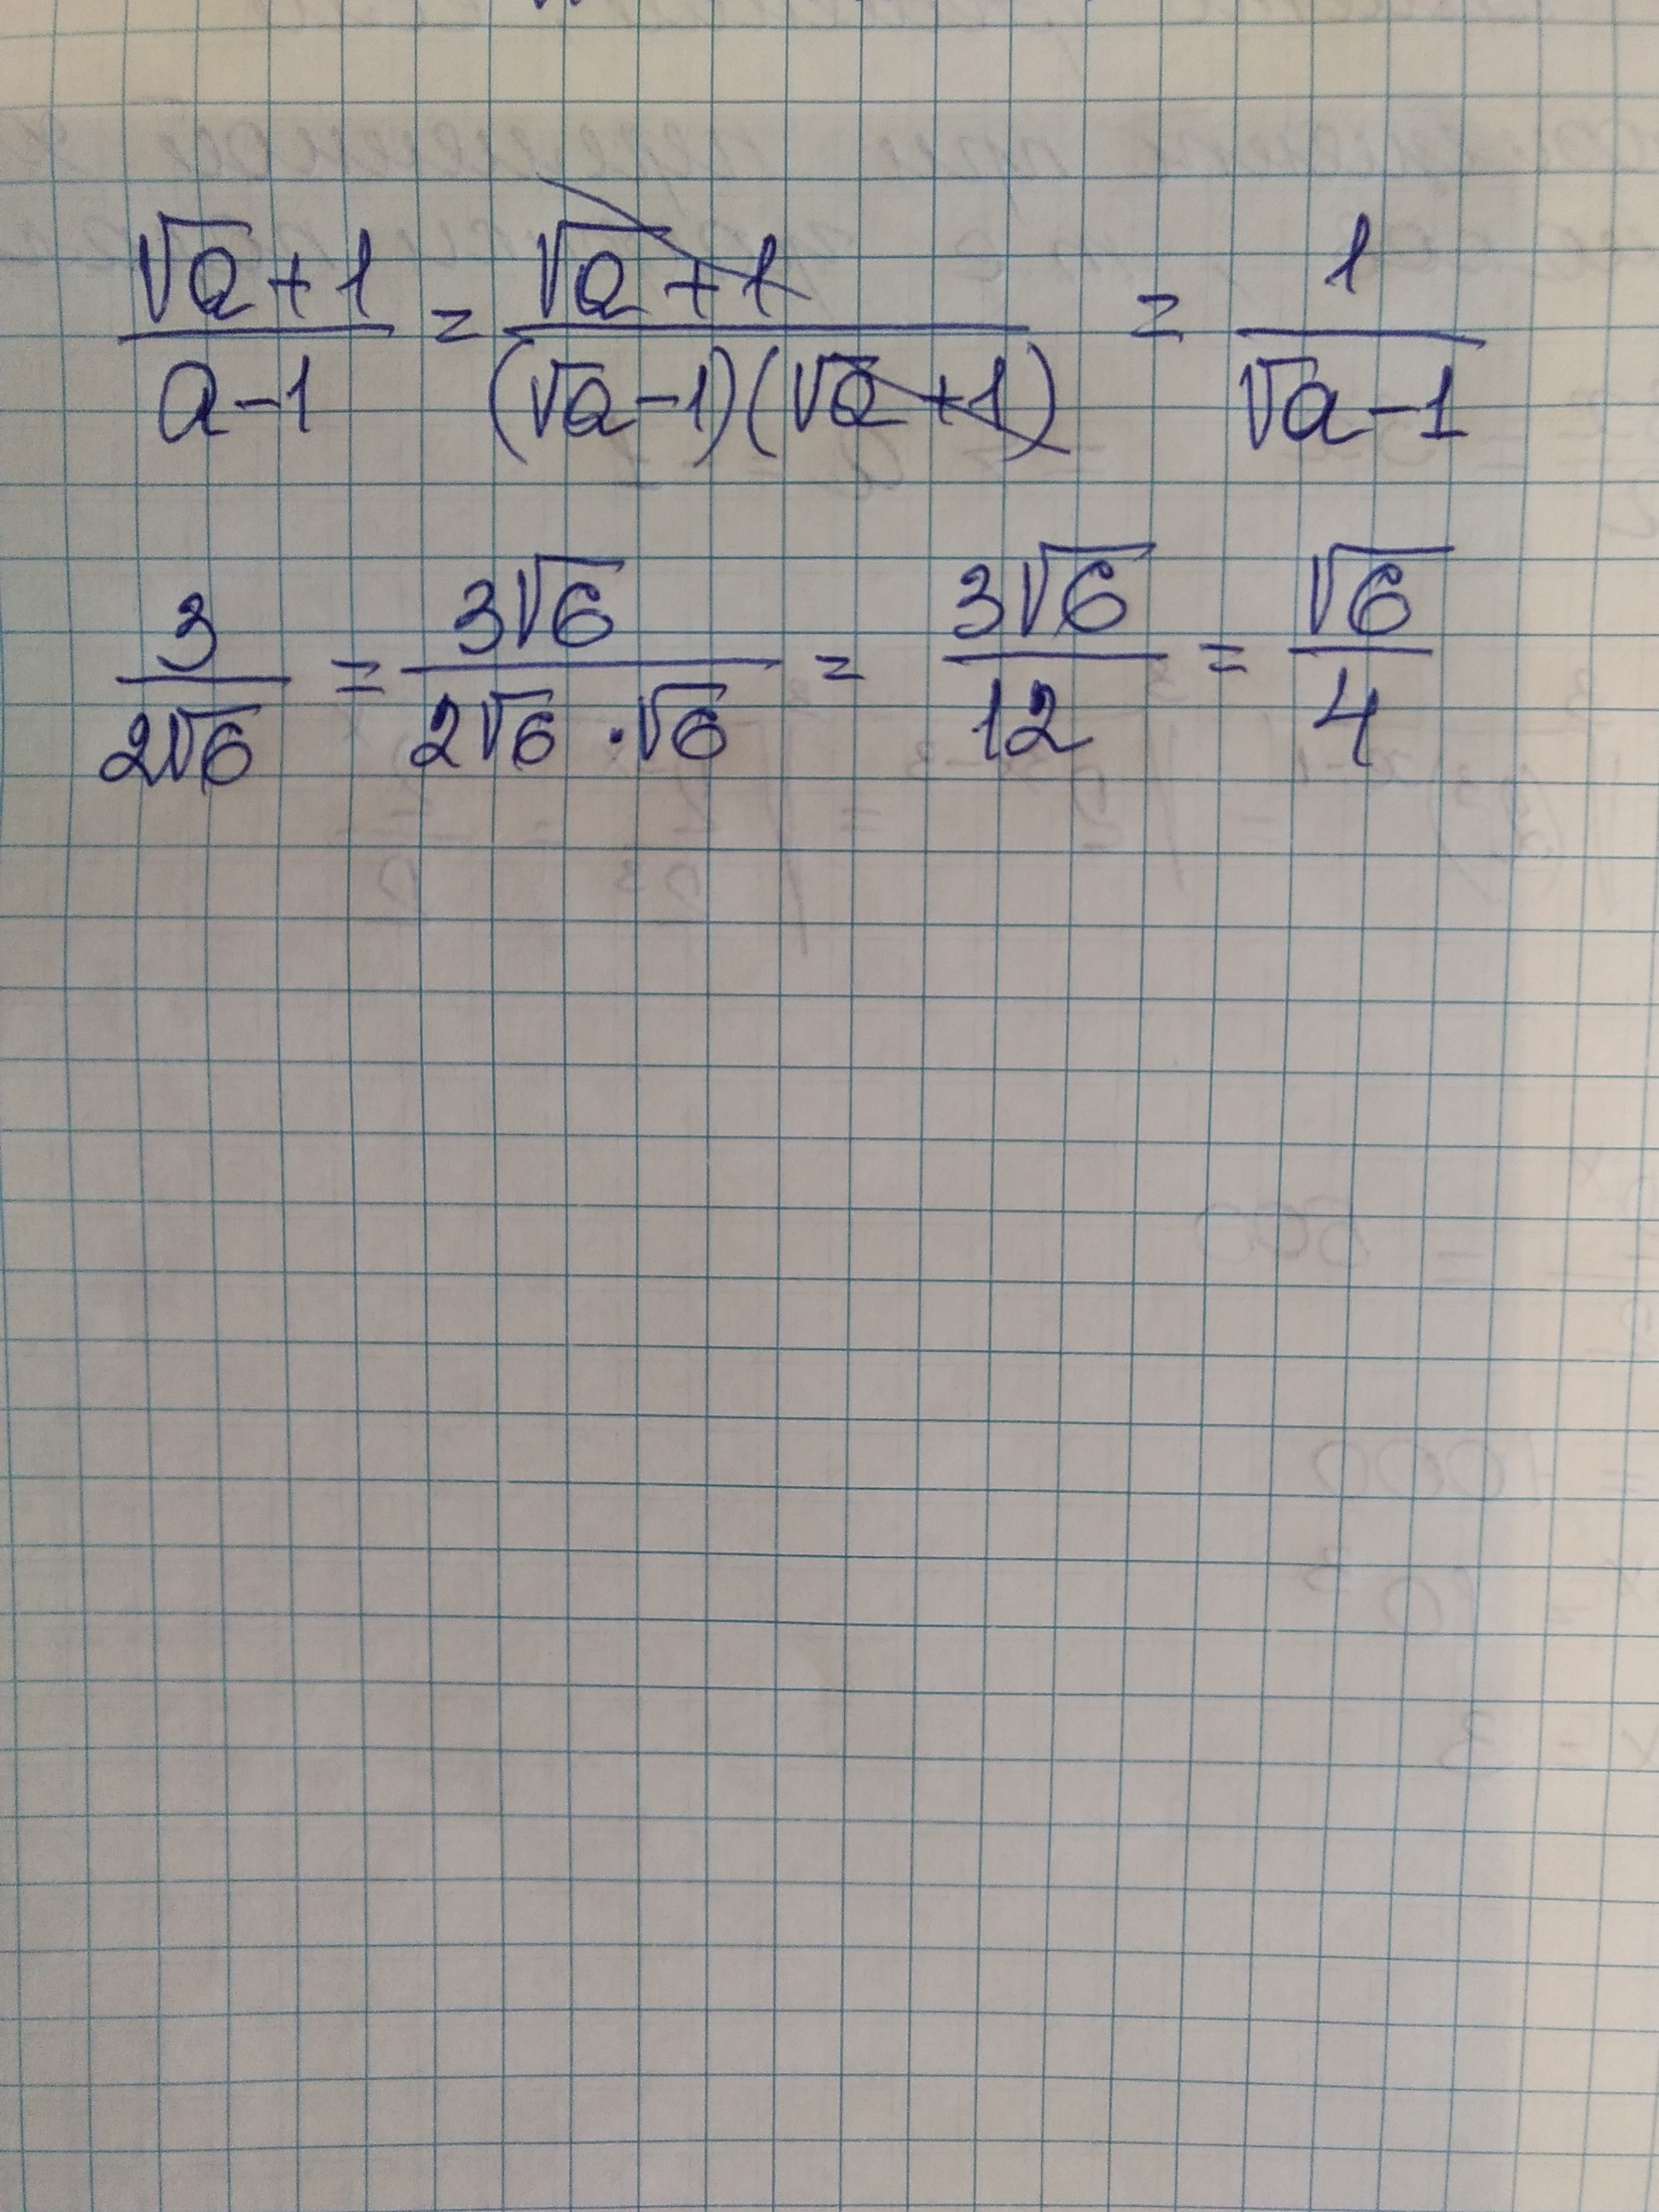 (√a+1)/(a-1) = (√a+1)/((√a-1)(√a+1)) = 1/(√a-1)
3/(2√6) = 3√6/(2√6·√6) = 3√6/12 = √6/4